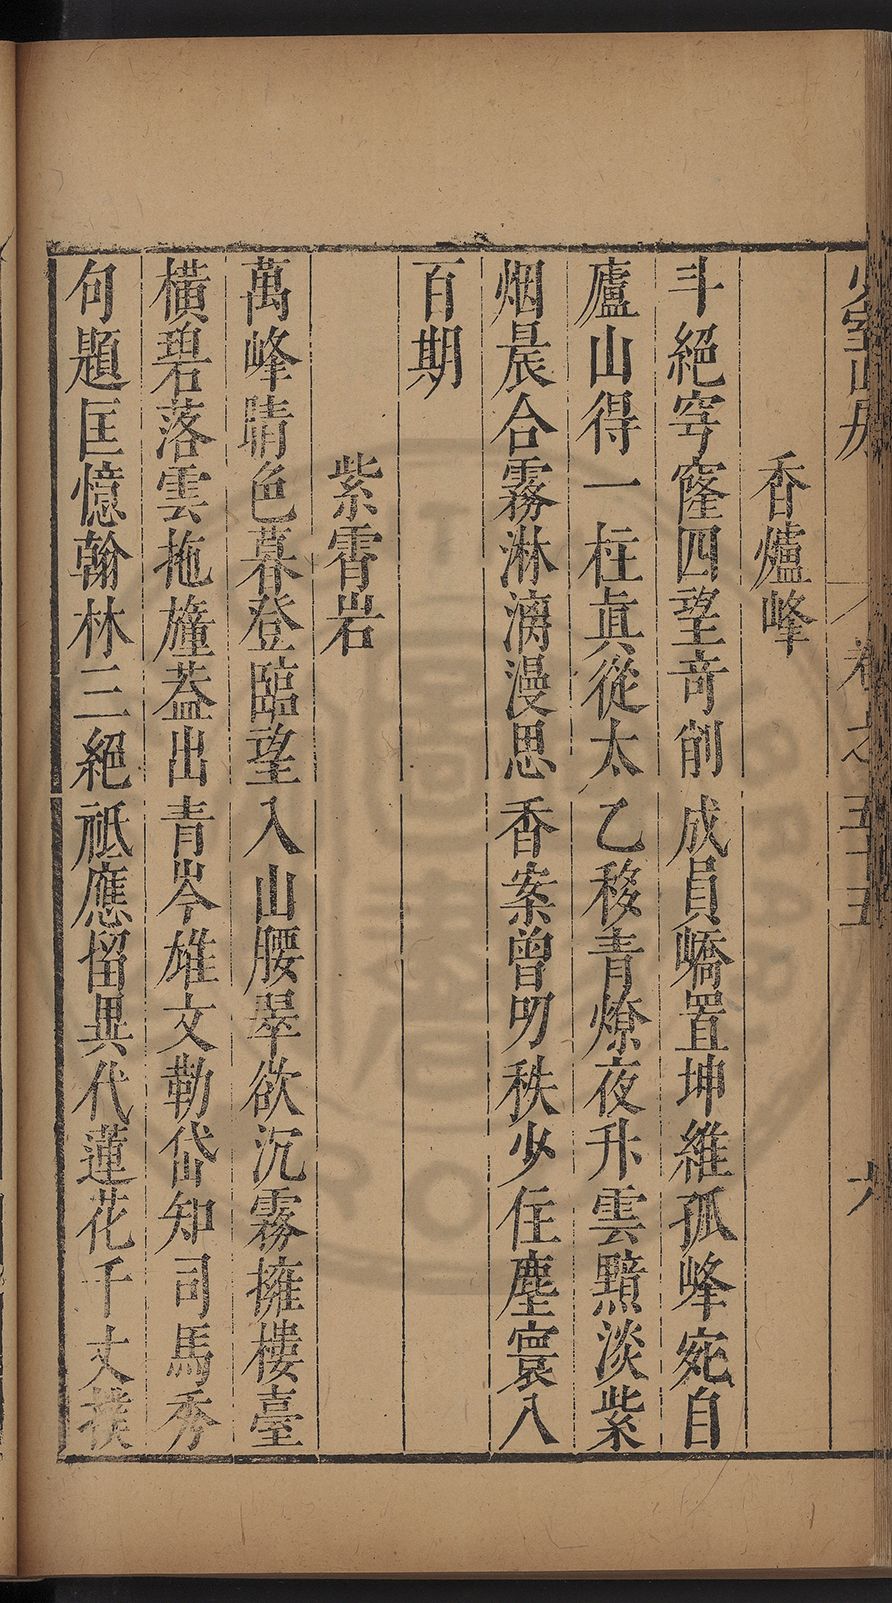 少室山房
卷之五十五
六
香爐峰
斗絕穹窿四望竒削成員嶠置坤維孤峰宛自
廬山得一柱眞從太乙移青燎夜升雲黯淡紫
烟晨合霧淋漓漫思香案曾叨秩少住塵寰入
百期
紫霄岩
萬峰晴色暮登臨望入山腰翠欲沉霧擁樓臺
橫碧落雲拖旛葢出青岑雄文勒岱知司馬秀
句題匡憶翰林三絕祗應留異代蓮花千丈襆